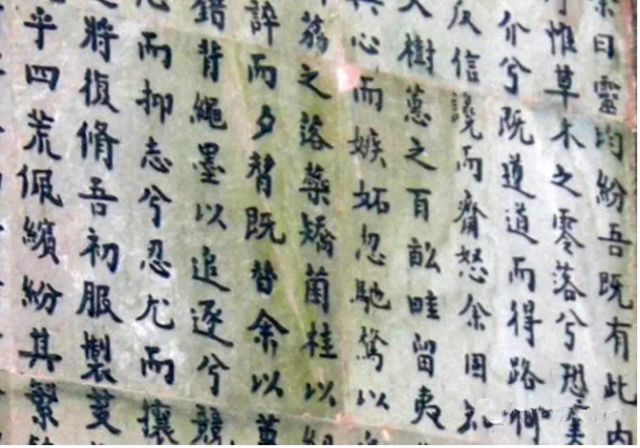 曰靈均紛吾既有此内
惟草木之零落兮恐美
介兮既遵道而得路何
反信讒而齌怒余固知
樹蕙之百畝畦留夷
心而嫉妬忽馳騖以
荔之落蘂矯菌桂以紉
誶而夕替既替余以蕙
錯背繩墨以追逐兮競
心而抑志兮忍尤而攘
將復脩吾初服製芰
乎四荒佩繽紛其繁